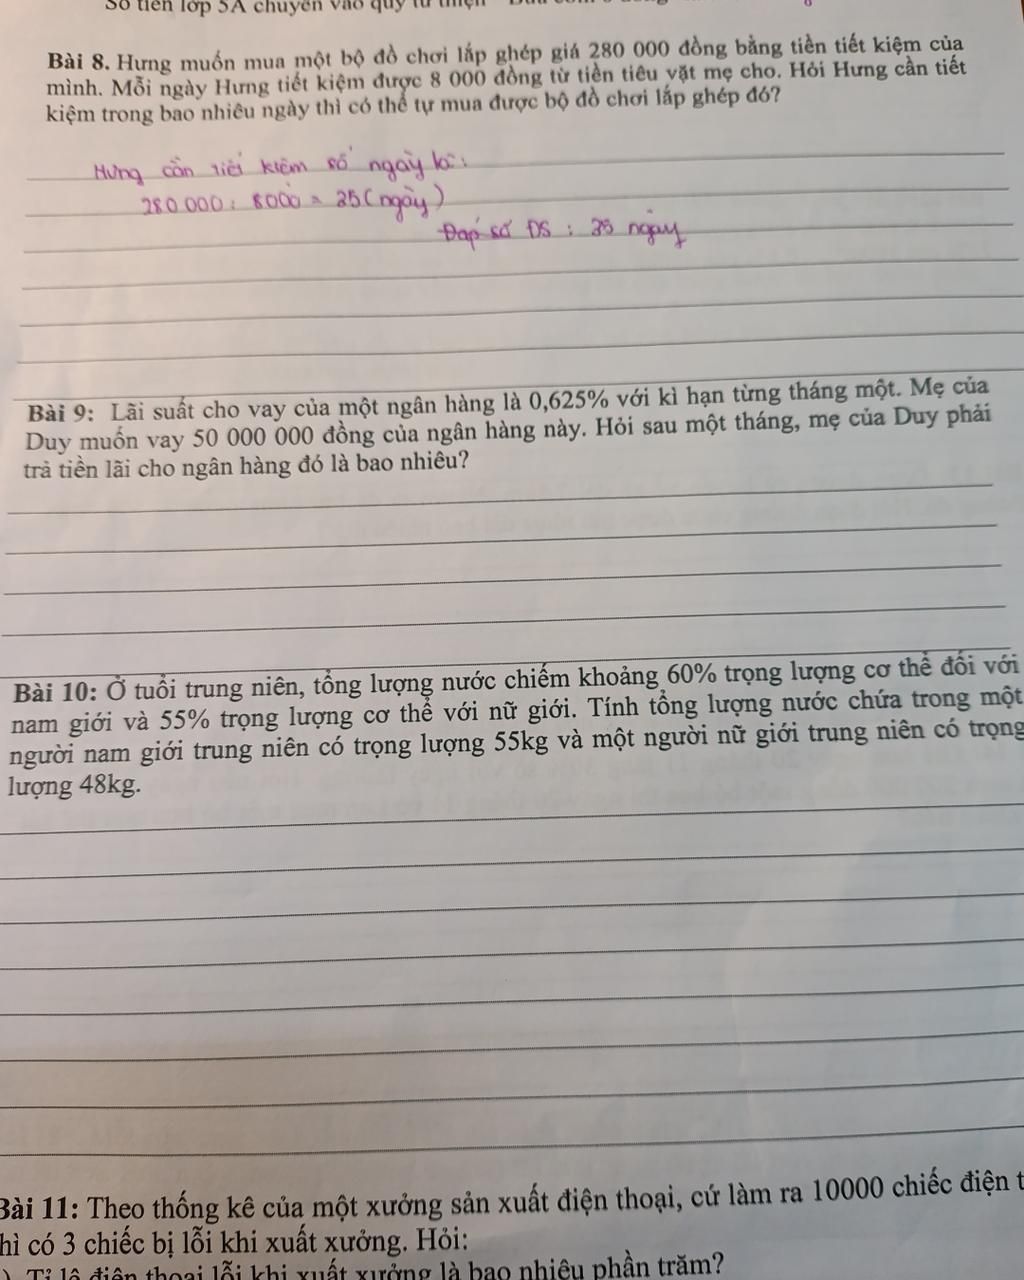 Số tiền lớp 5A chuyển vào quỹ từ thiện
Bài 8. Hưng muốn mua một bộ đồ chơi lắp ghép giá 280 000 đồng bằng tiền tiết kiệm của
mình. Mỗi ngày Hưng tiết kiệm được 8 000 đồng từ tiền tiêu vặt mẹ cho. Hỏi Hưng cần tiết
kiệm trong bao nhiêu ngày thì có thể tự mua được bộ đồ chơi lắp ghép đó?
Hưng cần tiết kiệm số ngày là:
280 000 : 8000 = 35 (ngày)
Đáp số ĐS : 35 ngày
Bài 9: Lãi suất cho vay của một ngân hàng là 0,625% với kì hạn từng tháng một. Mẹ của
Duy muốn vay 50 000 000 đồng của ngân hàng này. Hỏi sau một tháng, mẹ của Duy phải
trả tiền lãi cho ngân hàng đó là bao nhiêu?
Bài 10: Ở tuổi trung niên, tổng lượng nước chiếm khoảng 60% trọng lượng cơ thể đối với
nam giới và 55% trọng lượng cơ thể với nữ giới. Tính tổng lượng nước chứa trong một
người nam giới trung niên có trọng lượng 55kg và một người nữ giới trung niên có trọng
lượng 48kg.
Bài 11: Theo thống kê của một xưởng sản xuất điện thoại, cứ làm ra 10000 chiếc điện t
hì có 3 chiếc bị lỗi khi xuất xưởng. Hỏi:
) Tỉ lệ điện thoại lỗi khi xuất xưởng là bao nhiêu phần trăm?